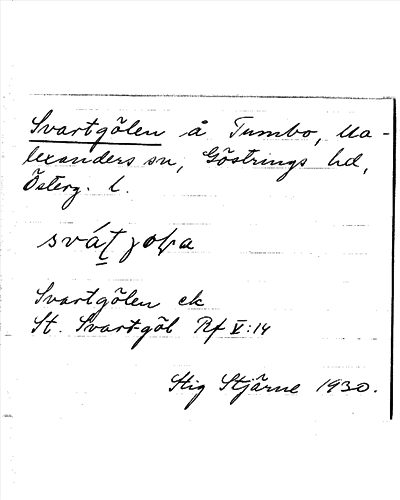 Svartgölen å Tumbo, Ua-
lexanders sn, Göstrings hd,
Österg. l.
Svartgölen ek
St. Svart-göl Rf V:14
Stig Stjärne 1930.